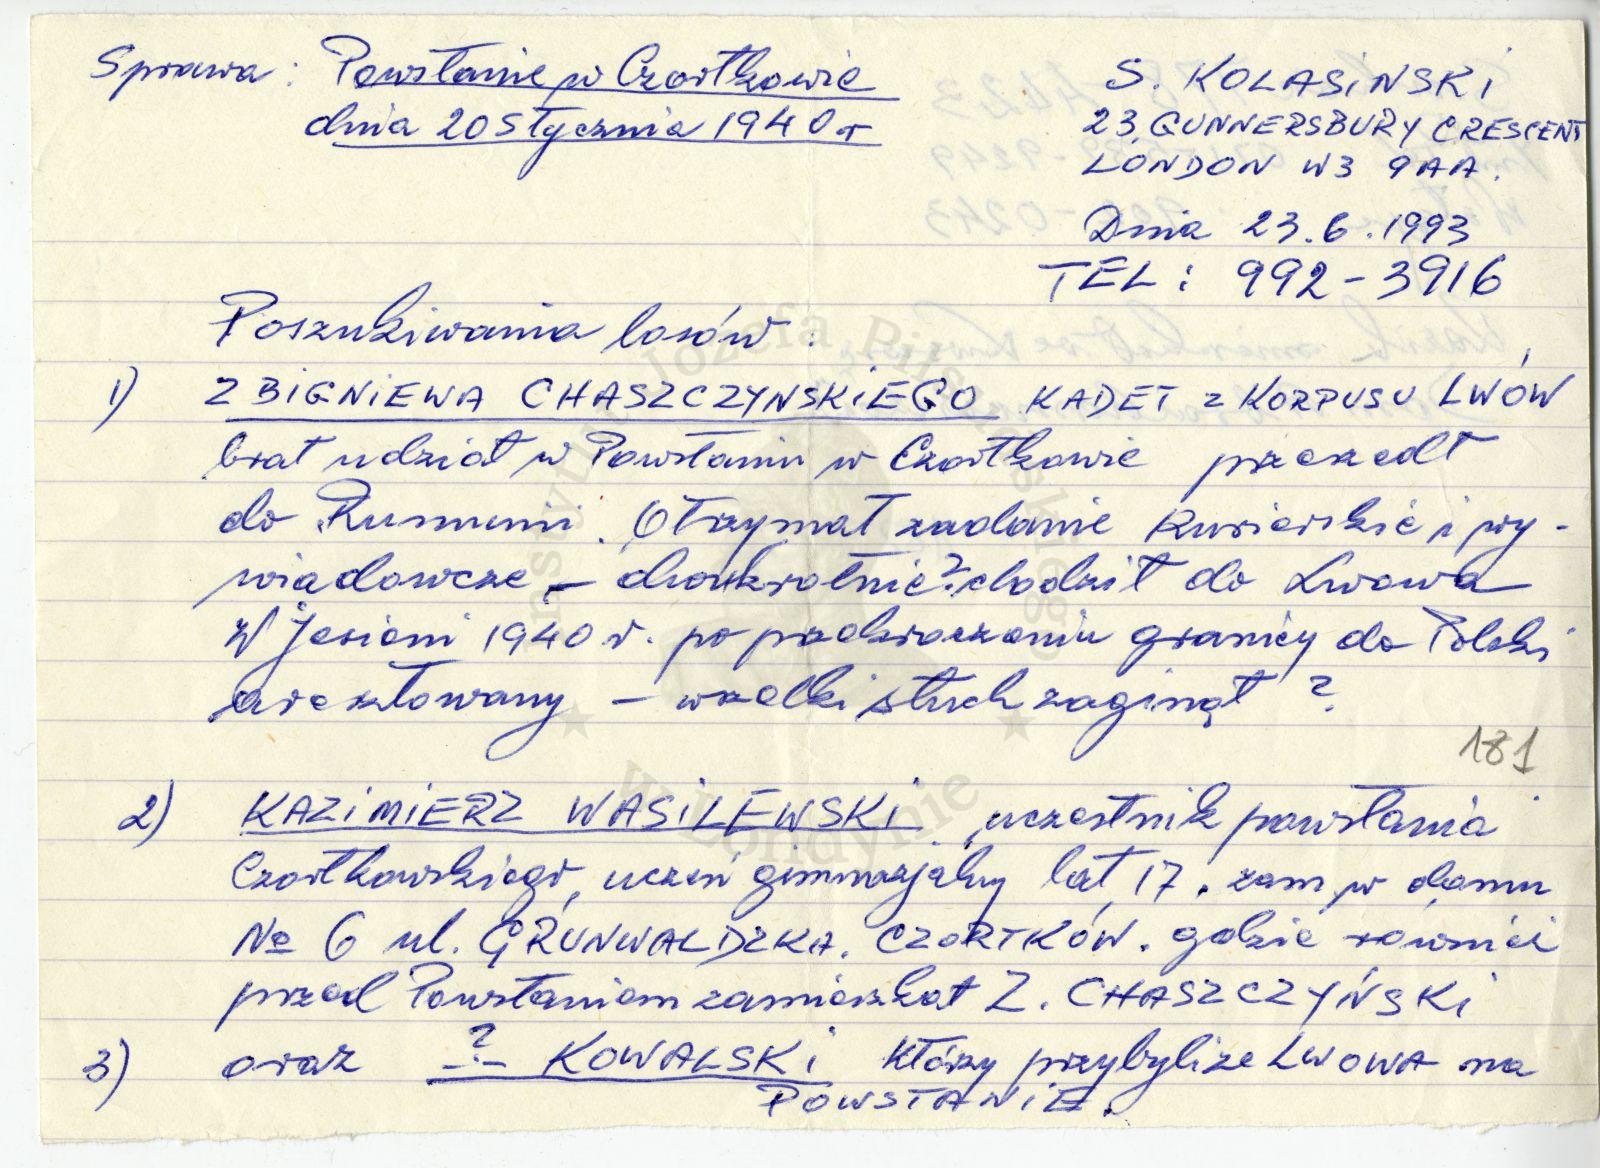 Sprawa: Powstanie w Czortkowie
dnia 20 Stycznia 1940 r
S. KOLASINSKI
23, GUNNERSBURY CRESCENT
LONDON W3 9AA.
Dnia 23.6.1993
TEL: 992-3916
Poszukiwania losów:
1) ZBIGNIEWA CHASZCZYNSKIEGO KADET z KORPUSU LWÓW
brał udział w Powstaniu w Czortkowie przeszedł
do Rumunii. Otrzymał zadanie kurierskie i wy-
wiadowcze - dwukrotnie? chodził do Lwowa
W Jesieni 1940 r. po przekroczeniu granicy do Polski
aresztowany - wszelki słuch zaginął ?
181
2) KAZIMIERZ WASILEWSKI, uczestnik powstania
Czortkowskiego, uczeń gimnazjalny lat 17. zam. w domu
No 6 ul. GRUNWALDZKA. CZORTKÓW. gdzie również
przed Powstaniem zamieszkał Z. CHASZCZYŃSKI
3) oraz -?- KOWALSKI którzy przybyli ze LWOWA na
POWSTANIE.
Instytut Józefa Piłsudskiego
w Londynie